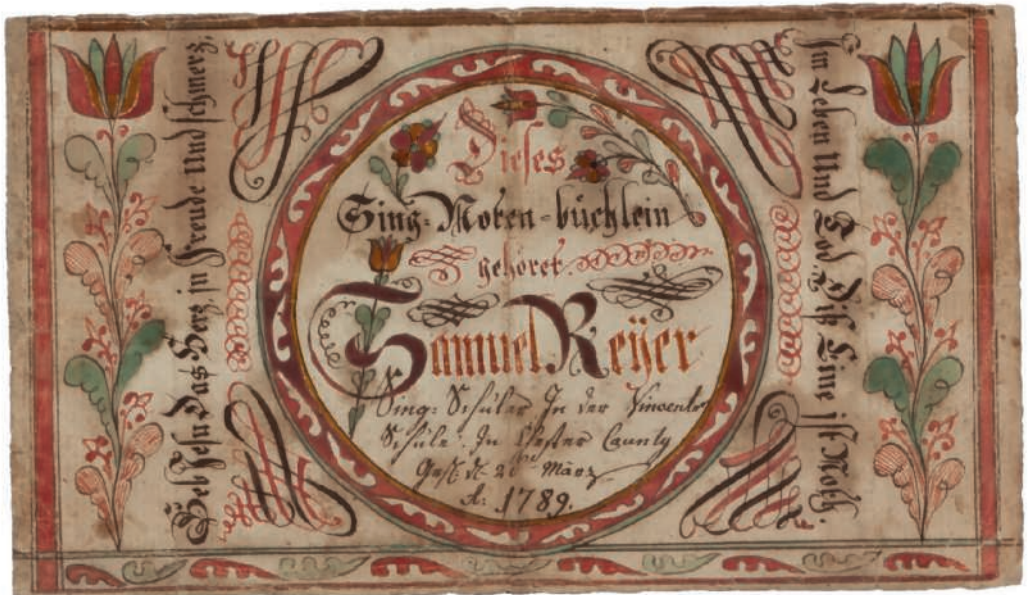 Gib Jesu Das Herz, in Freude Und schmerz,
Dieses
Sing-Noten-büchlein
gehöret
Samuel Reÿer
Sing-Schüler In der Vincenter
Schule In Chester Caunty
Gesch. d. 20 März
A: 1789.
Im Leben Und Tod Diß Eine ist Noth.